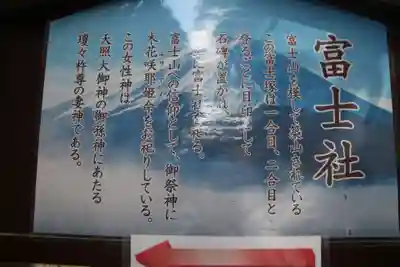 富士社
富士山を模して築山されている
この富士塚は一合目、二合目と
登るごとに目印として
石碑が置かれ、
に富士社を祀る。
富士山への信仰として、御祭神に
木花咲耶姫命をお祀りしている。
この女性神は
天照大御神の御孫神にあたる
瓊々杵尊の妻神である。